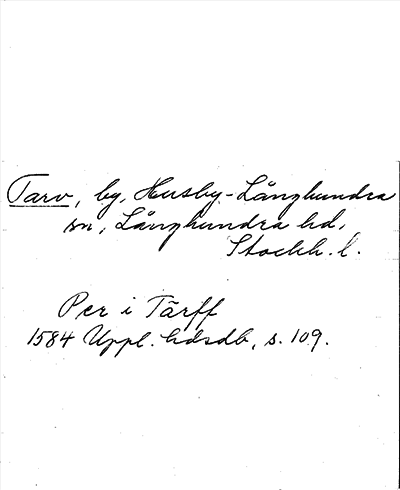 Tarv, by, Husby-Långhundra
sn, Långhundra hd,
Stockh. l.
Per i Tärff
1584 Uppl. hdrdb, s. 109.